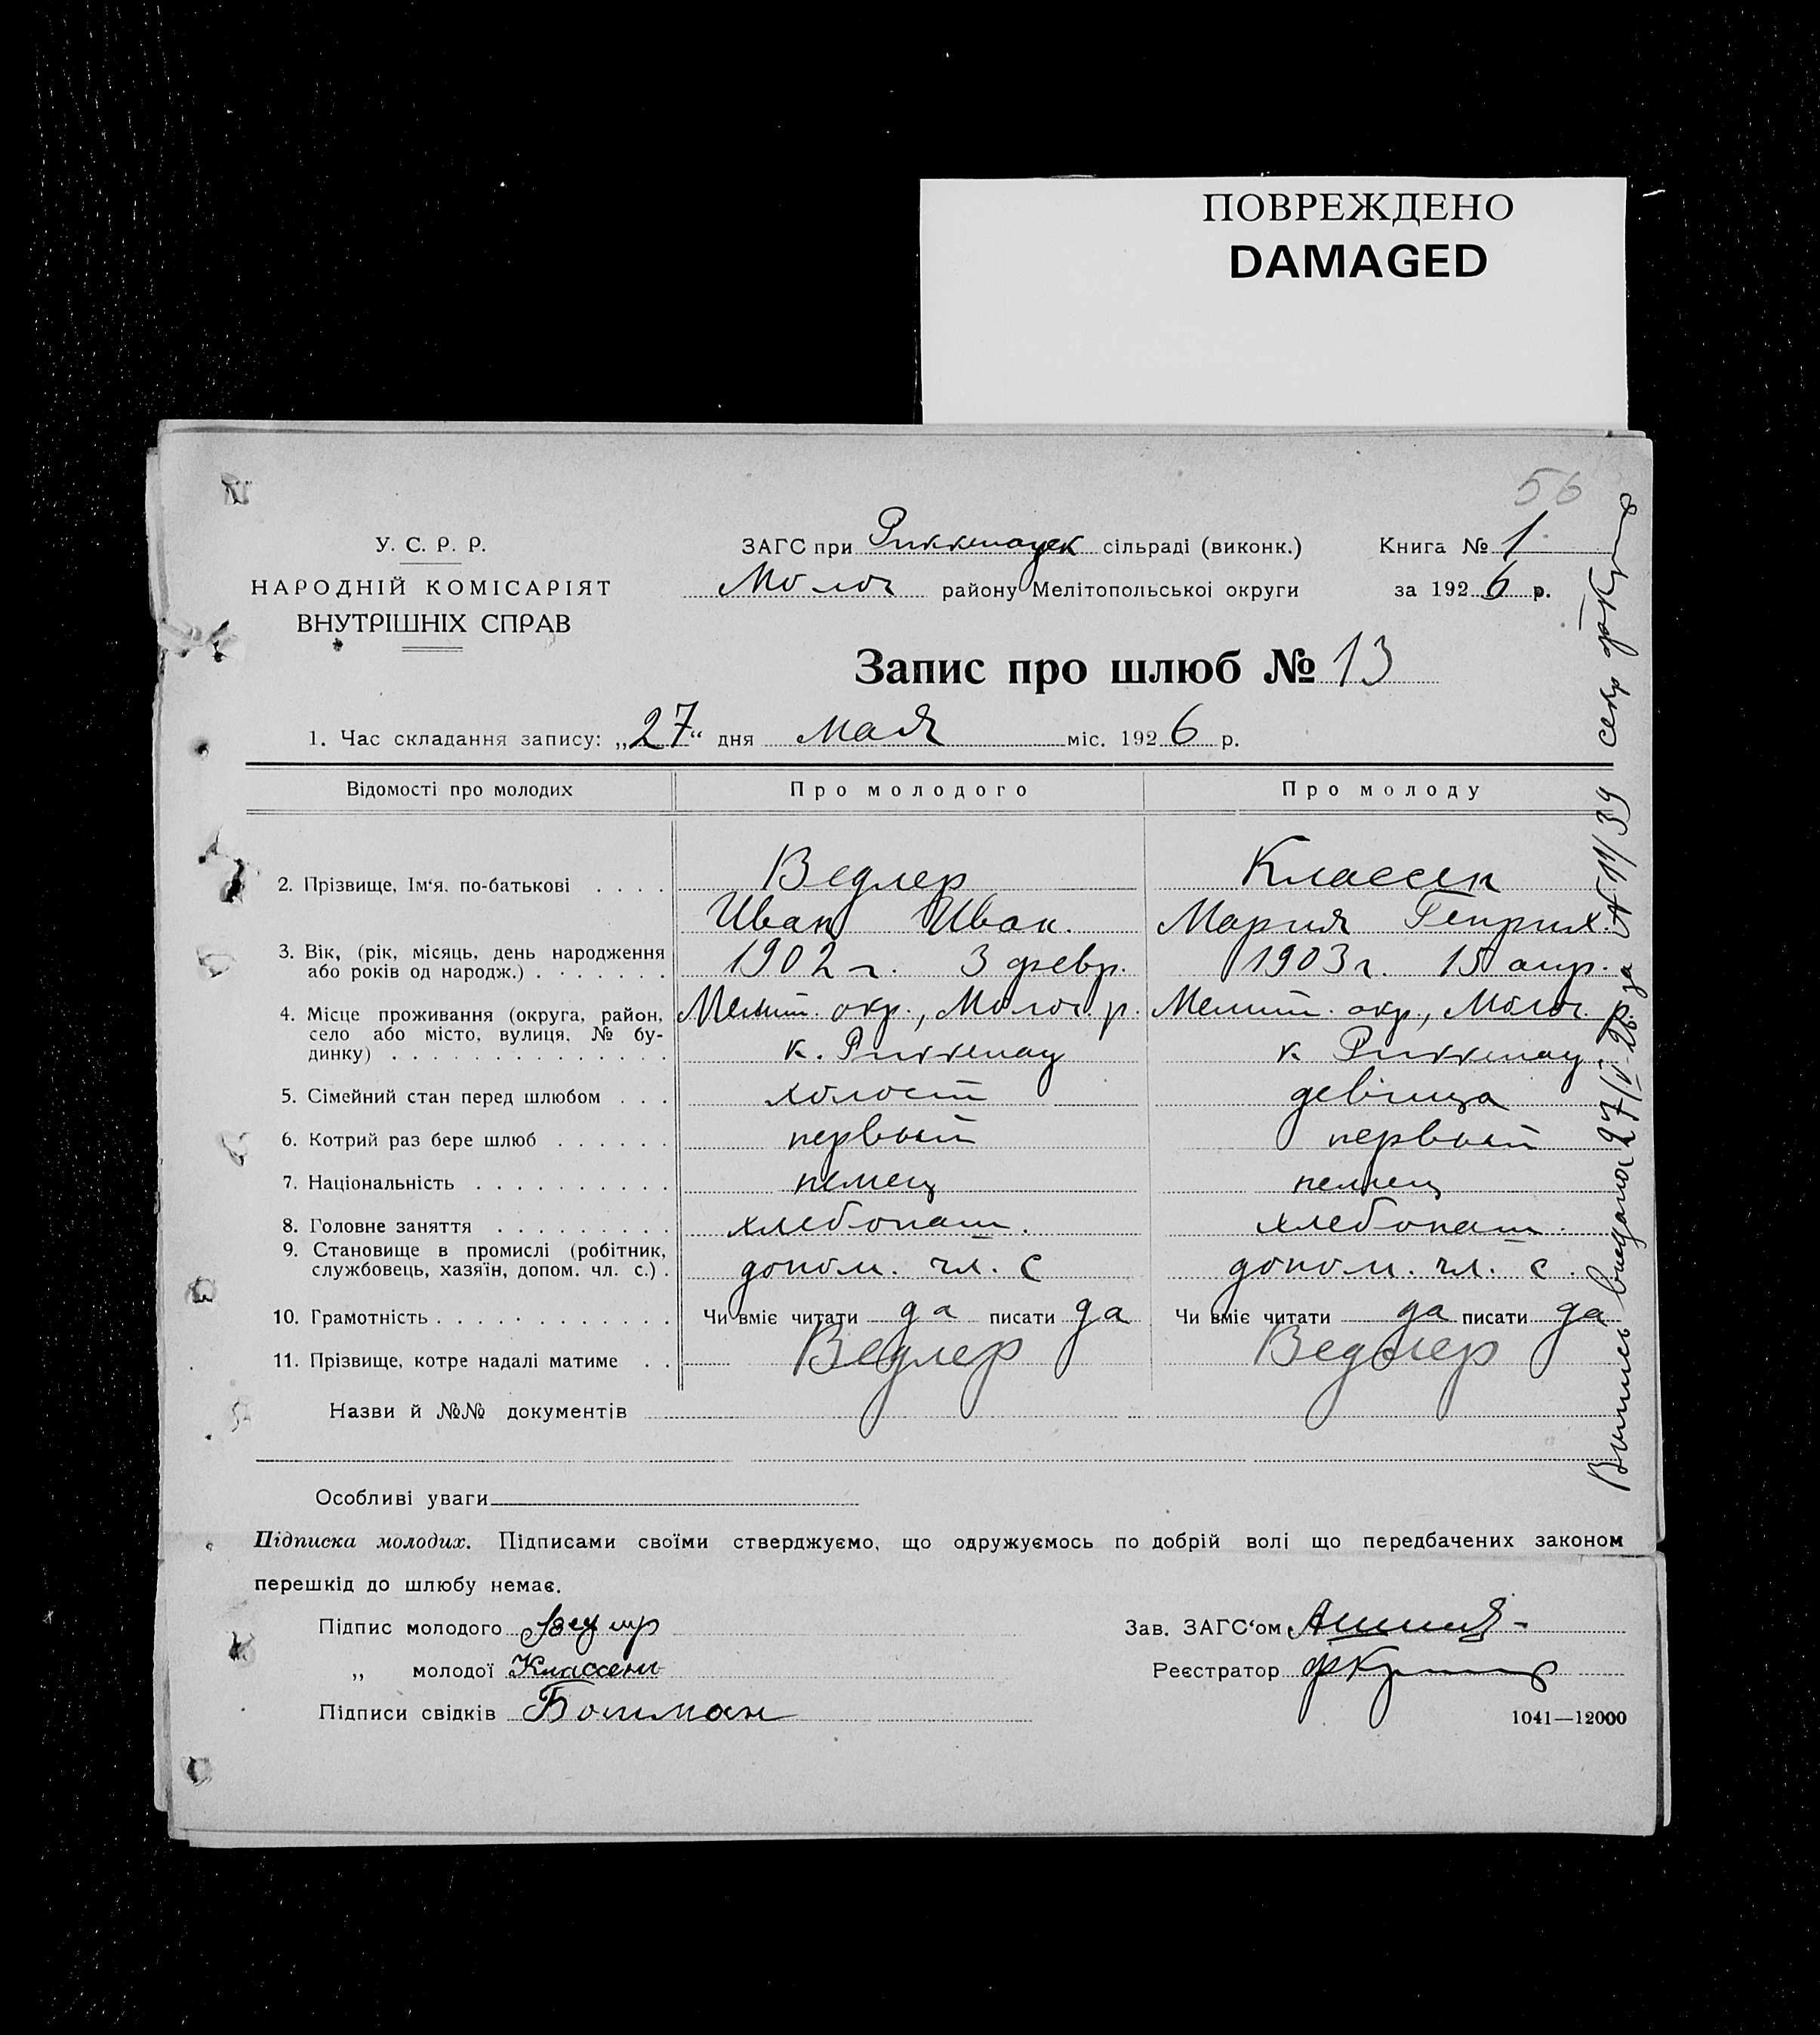 ПОВРЕЖДЕНО
DAMAGED
56
У. С. Р. Р.
НАРОДНІЙ КОМІСАРІЯТ
ВНУТРІШНІХ СПРАВ
ЗАГС при Риккенауск сільраді (виконк.)
Молоч району Мелітопольської округи
Книга № 1
за 1926 р.
Запис про шлюб № 13
1. Час складання запису: „27“ дня мая міс. 1926 р.
Відомості про молодих Про молодого Про молоду
2. Прізвище, Ім‘я. по-батькові Ведлер Классен
Иван Иван. Мария Генрих.
3. Вік, (рік, місяць, день народження
або років од народж.) 1902 г. 3 февр. 1903 г. 15 апр.
4. Місце проживання (округа, район, Мелит. окр., Молоч. р. Мелит. окр., Молоч. р.
село або місто, вулиця, № бу-
динку) к. Риккенау к. Риккенау
5. Сімейний стан перед шлюбом холост девица
6. Котрий раз бере шлюб первый первый
7. Національність немец немец
8. Головне заняття хлебопаш. хлебопаш.
9. Становище в промислі (робітник,
службовець, хазяїн, допом. чл. с.) допом. чл. с допом. чл. с.
10. Грамотність Чи вміє читати да писати да Чи вміє читати да писати да
11. Прізвище, котре надалі матиме Ведлер Ведлер
Назви й №№ документів
Особливі уваги
Підписка молодих. Підписами своїми стверджуємо, що одружуємось по добрій волі що передбачених законом
перешкід до шлюбу немає.
Підпис молодого Ведлер
„ молодої Классенъ
Підписи свідків Больман
Зав. ЗАГС‘ом
Реєстратор
1041—12000
Выпись выдана 27/V-26 за № 11/39 секр